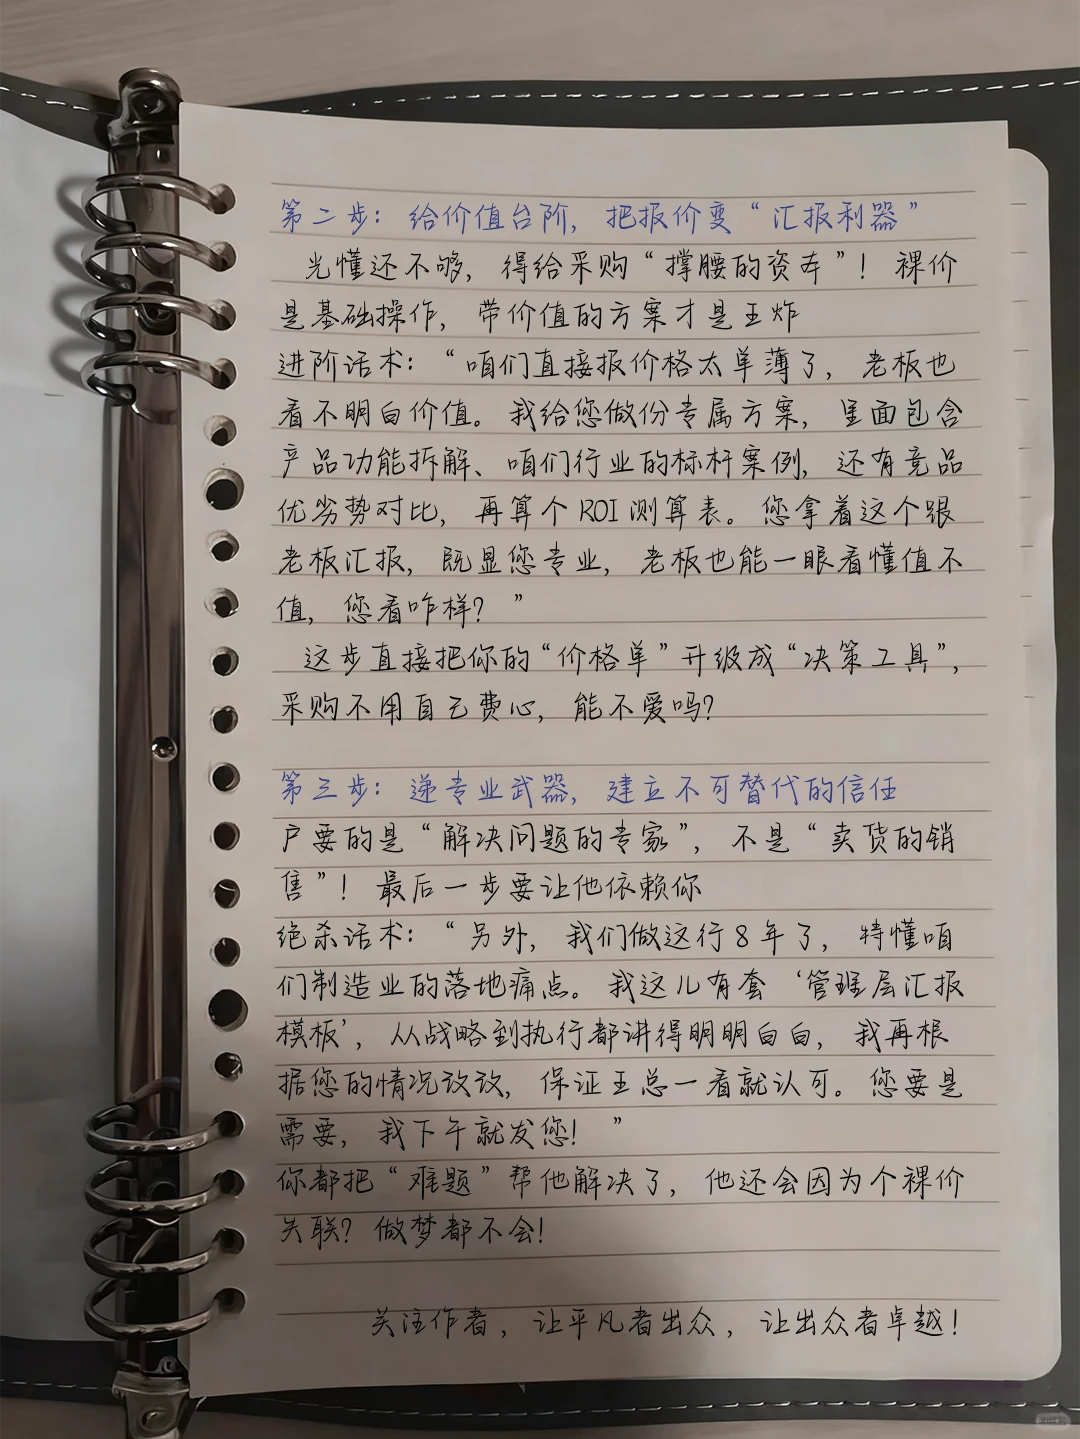 第二步：给价值台阶，把报价变“汇报利器”
光懂还不够，得给采购“撑腰的资本”！裸价
是基础操作，带价值的方案才是王炸
进阶话术：“咱们直接报价格太单薄了，老板也
看不明白价值。我给您做份专属方案，里面包含
产品功能拆解、咱们行业的标杆案例，还有竞品
优劣势对比，再算个ROI测算表。您拿着这个跟
老板汇报，既显您专业，老板也能一眼看懂值不
值，您看咋样？”
这步直接把你的“价格单”升级成“决策工具”，
采购不用自己费心，能不爱吗？
第三步：递专业武器，建立不可替代的信任
户要的是“解决问题的专家”，不是“卖货的销
售”！最后一步要让他依赖你
绝杀话术：“另外，我们做这行8年了，特懂咱
们制造业的落地痛点。我这儿有套‘管理层汇报
模板’，从战略到执行都讲得明明白白，我再根
据您的情况改改，保证王总一看就认可。您要是
需要，我下午就发您！”
你都把“难题”帮他解决了，他还会因为个裸价
失联？做梦都不会！
关注作者，让平凡者出众，让出众者卓越！